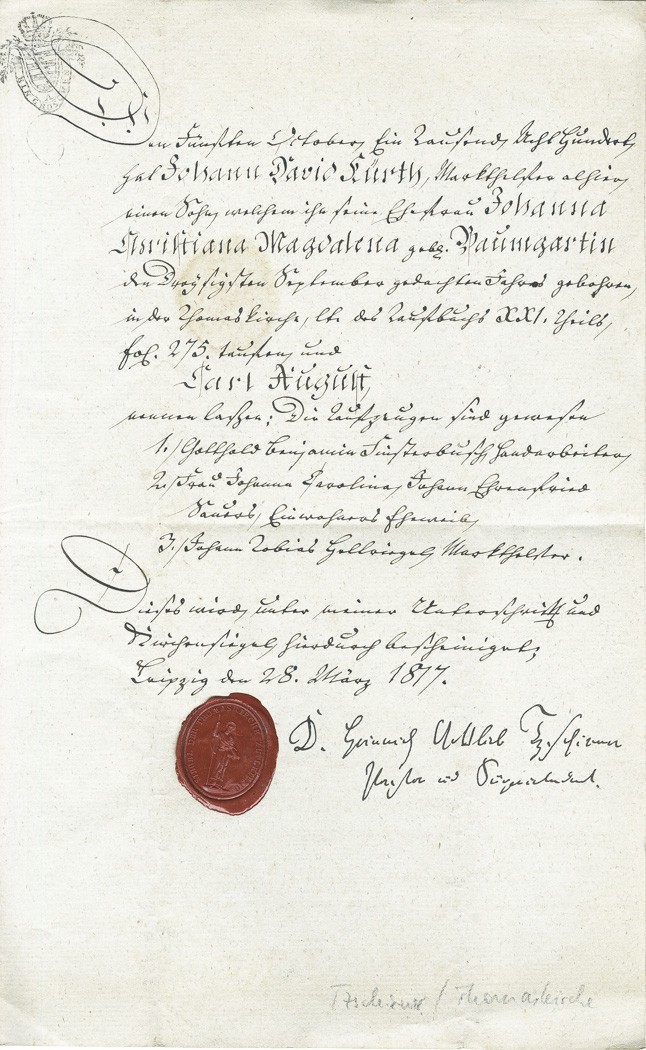 Den Fünften October, Ein Tausend, Acht Hundert,
hat Johann David Kürth, Markthelfer alhier,
einen Sohn, welchen ihm seine Ehefrau Johanna
Christiana Magdalena geb. Baumgartin
den Dreyßigsten September gedachten Jahres gebohren,
in der Thomaskirche, des Taufbuchs XXI. Theils,
fol. 275. taufen, und
Carl August,
nennen laßen; Die Taufzeugen sind gewesen
1./ Gotthold Benjamin Finsterbusch, Handarbeiter,
2./ Frau Johanna Carolina, Johann Ehrenfried
Sauers, Einwohners Eheweib,
3./ Johann Tobias Hellriegel, Markthelfer.
Dieses wird, unter meiner Unterschrift und
Kirchensiegel, hierdurch bescheiniget;
Leipzig den 28. März 1817.
D. Heinrich Gottlieb Tzschirner
Pastor und Superintendent.
Tzschirner / Thomaskirche